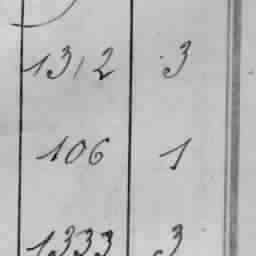 1312 3
106 1
1333 3